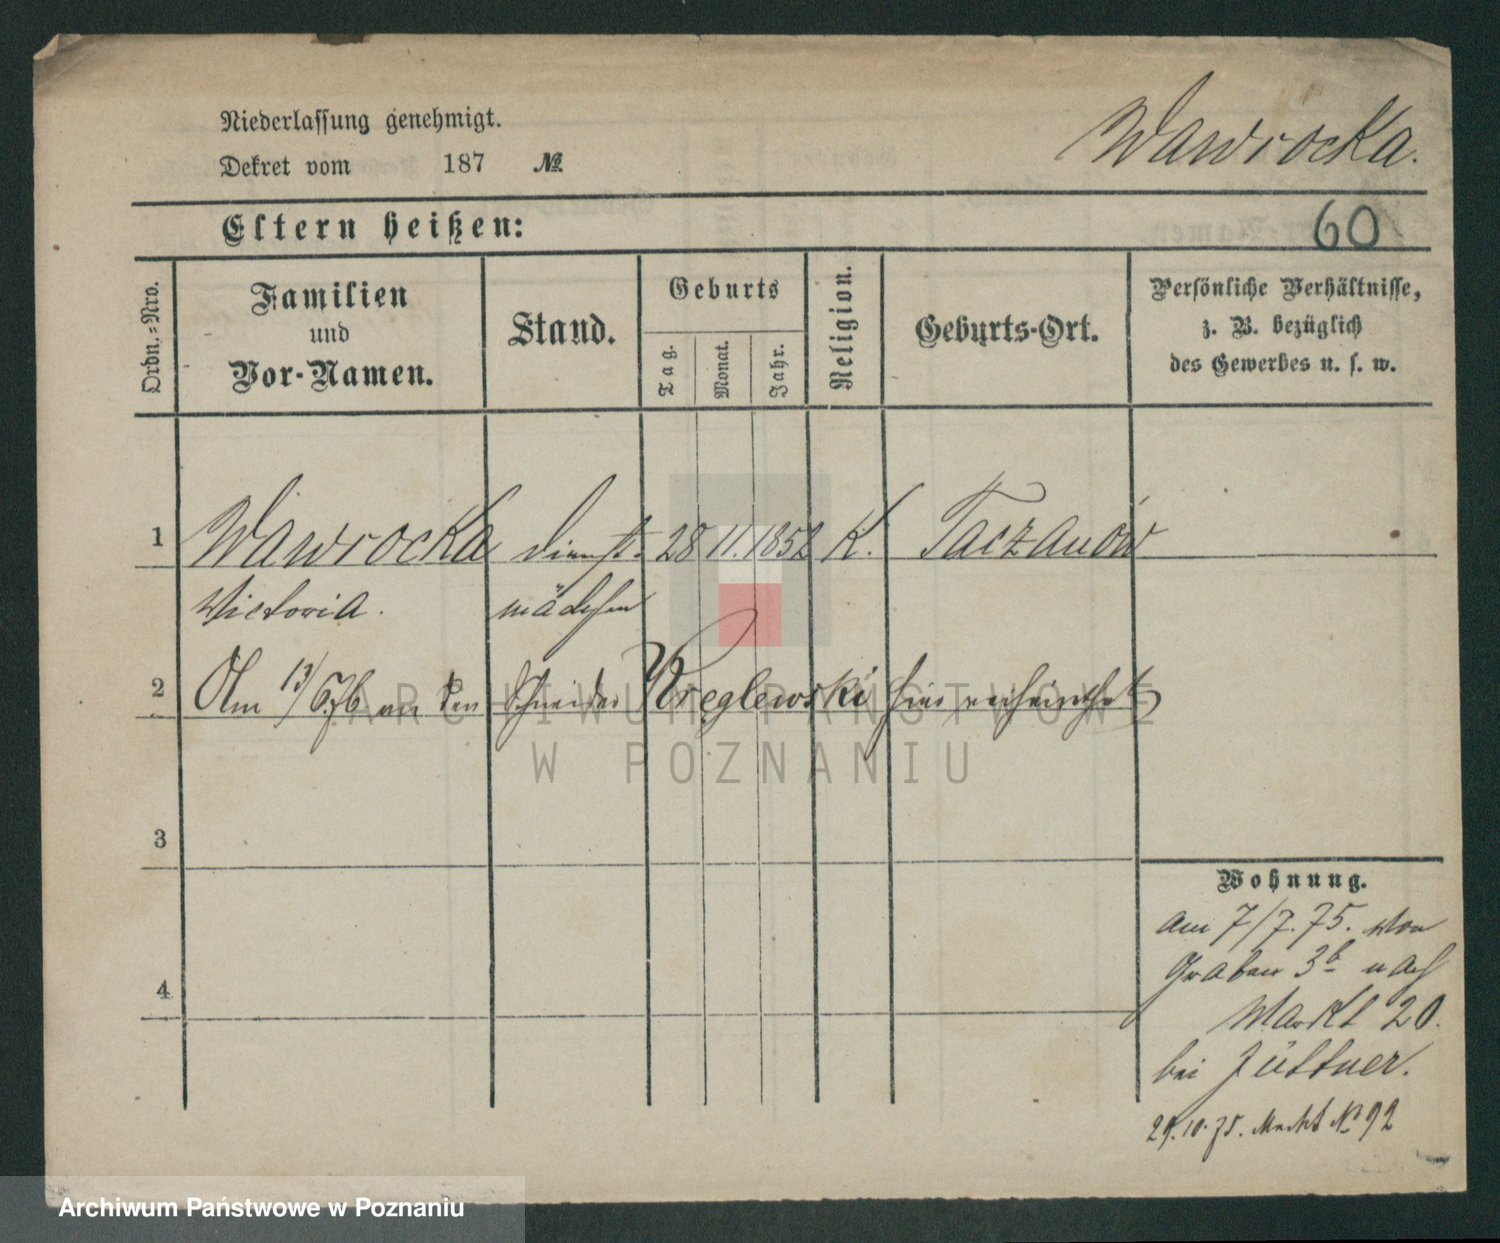 Niederlassung genehmigt.
Wawrocka.
Dekret vom 187 №
Eltern heißen:
60
Ordn.-Nro.
Familien
und
Vor-Namen.
Stand.
Geburts
Tag.
Monat.
Jahr.
Religion.
Geburts-Ort.
Persönliche Verhältnisse,
z. B. bezüglich
des Gewerbes u. s. w.
1 Wawrocka Dienst- 28 11. 1852 K. Taczanów
Victoria. mädchen
2 Am 13/6 76 an den Schneider Kręglewski hier verheirathet
ARCHIWUM PAŃSTWOWE
W POZNANIU
3
4
Wohnung.
am 7/7. 75. von
Graben 3b nach
Markt 20.
bei Jüttner.
29.10.75. Markt № 92
Archiwum Państwowe w Poznaniu